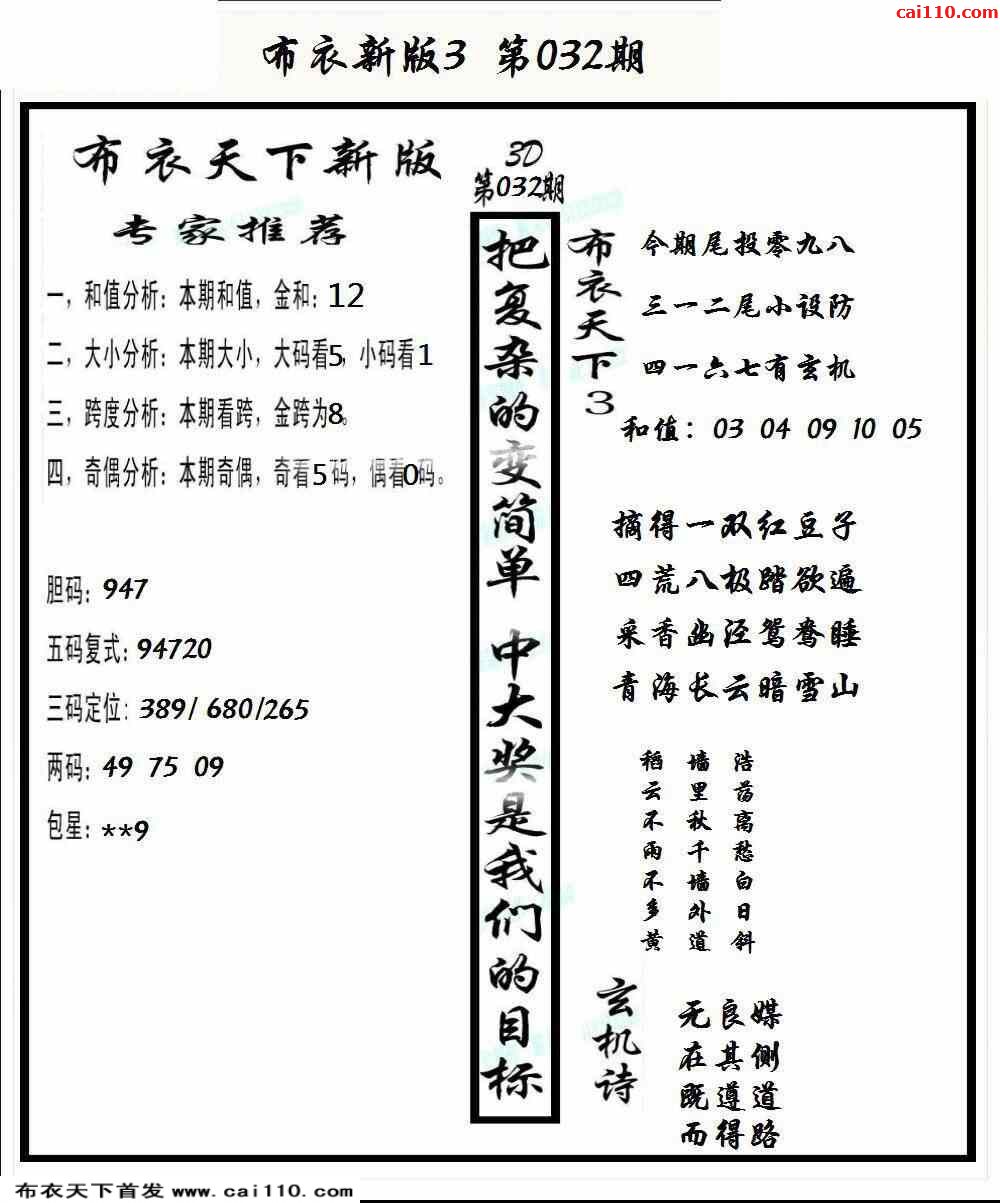 cai110.com
布衣新版3 第032期
布衣天下新版
专家推荐
一，和值分析：本期和值，金和：12
二，大小分析：本期大小，大码看5，小码看1
三，跨度分析：本期看跨，金跨为8。
四，奇偶分析：本期奇偶，奇看5码，偶看0码。
胆码：947
五码复式：94720
三码定位：389/ 680/265
两码：49 75 09
包星：**9
3D
第032期
把复杂的变简单 中大奖是我们的目标
布衣天下3
今期尾投零九八
三一二尾小设防
四一六七有玄机
和值：03 04 09 10 05
摘得一双红豆子
四荒八极踏欲遍
采香幽泾鸳鸯睡
青海长云暗雪山
浩荡离愁白日斜
墙里秋千墙外道
稻云不雨不多黄
玄机诗
无良媒
在其侧
既遵道
而得路
布衣天下首发 www.cai110.com